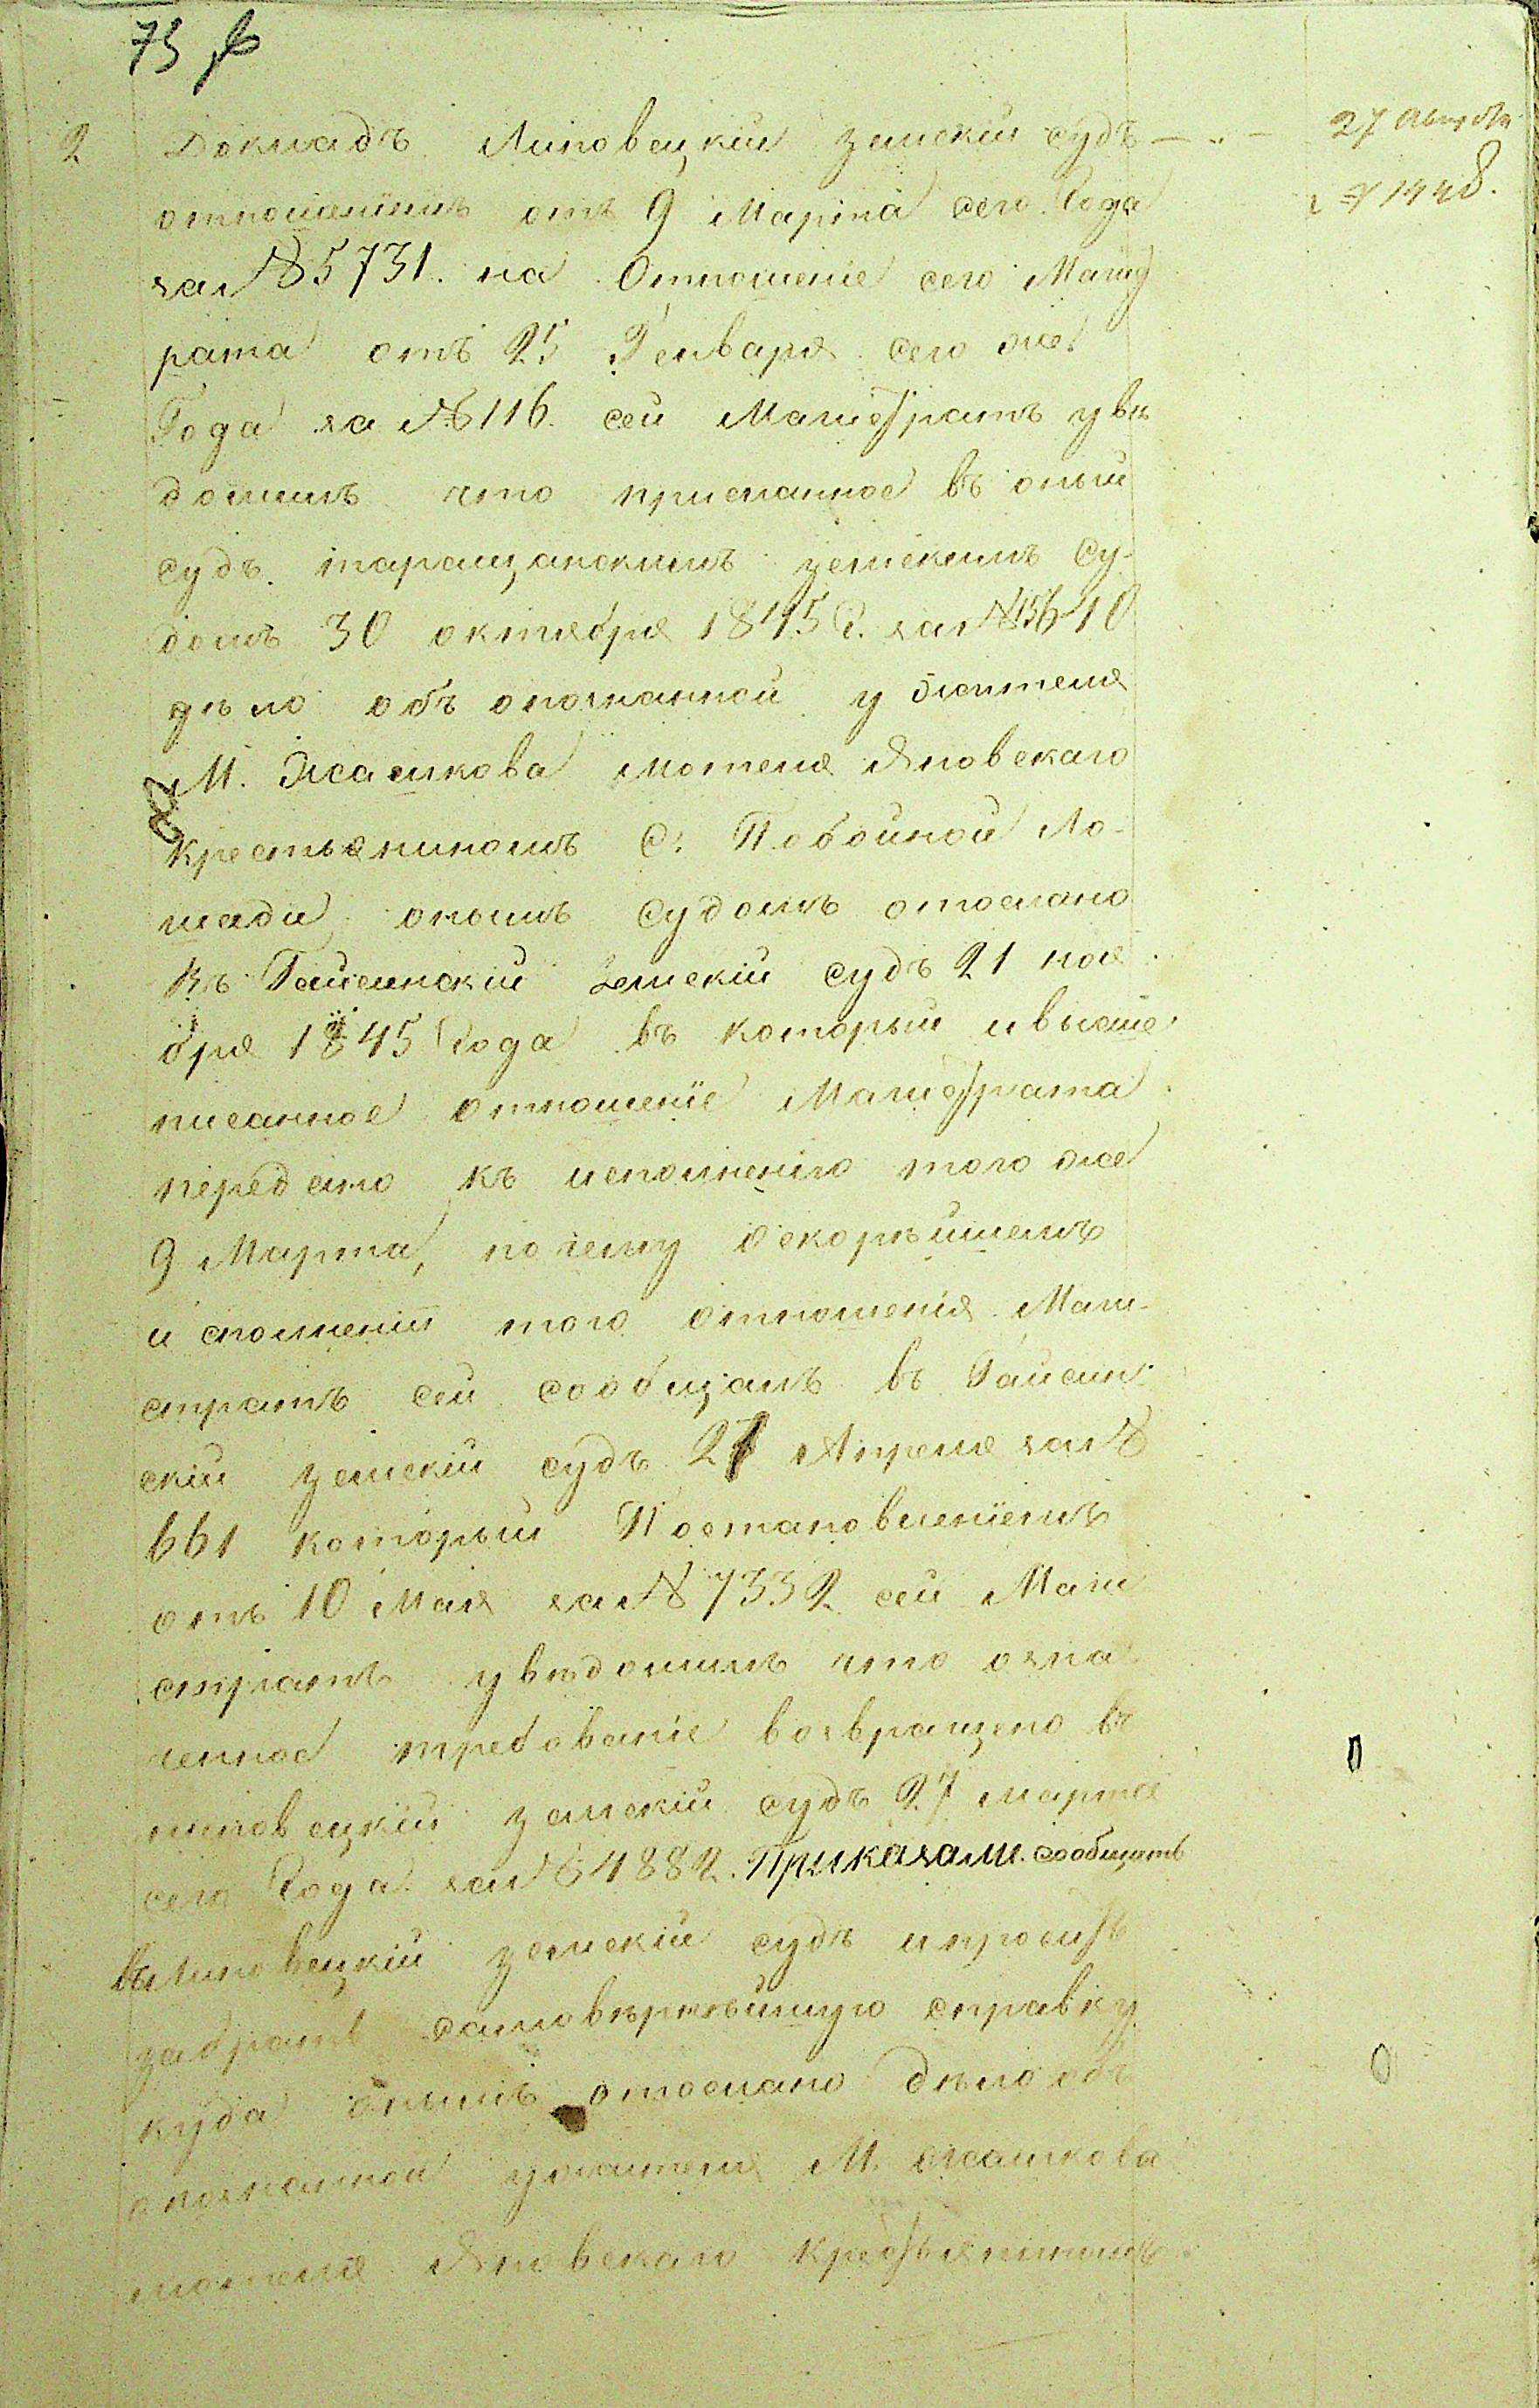 75
2 Докладъ Липовецкій земскій судъ — 27 Августа
отношеніемъ отъ 9 Марта сего Года № 1448.
за № 5731. на Отношеніе сего Маги
рата отъ 25 Генваря сего же
Года за № 116. сей Магистратъ увѣ
домилъ что присланное въ оный
судъ таращанскимъ земскимъ Су-
домъ 30 октября 1845 г. за № 15610
дѣло объ опознанной у жителя
М. Жашкова мотеля Яновскаго
крестьяниномъ С: Побойной Ло-
шади онымъ Судомъ отослано
въ Гайсинскій Земскій судъ 21 ноя
бря 1845 Года въ который и выше
писанное отношеніе Магистрата
передано къ исполненію того же
9 Марта, почему о скорѣйшемъ
исполненіи того отношенія Маги-
стратъ сей сообщалъ въ Гайсин
скій земскій судъ 27 Апреля за №
661 который Постановленіемъ
отъ 10 Мая за № 7332 сей Маги
стратъ увѣдомилъ что озна
ченное требованіе возвращено въ
липовецкій земскій судъ 27 марта
сего Года за № 4882. Приказали. сообщить
въ Липовецкій земскій судъ и просить
забрать самовѣрнѣйшую справку
куда онымъ отослано дѣло объ
опознанной у жителя М. Жашкова
мотеля Яновскаго крестьяниномъ